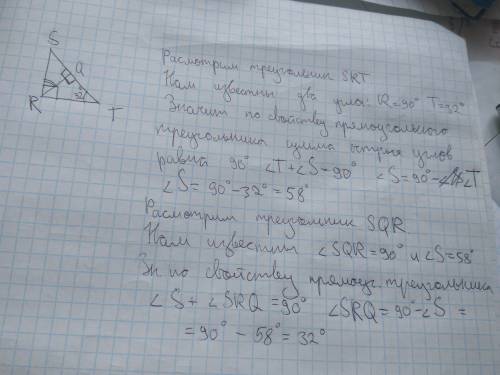 S
Q
R
32°
T
Расмотрим треугольник SRT
Нам известны два угла: R=90° T=32°
Значит по свойству прямоугольного
треугольника сумма острых углов
равна 90° ∠T+∠S=90° ∠S=90°-∠T
∠S=90°-32°=58°
Расмотрим треугольник SQR
Нам известны ∠SQR=90° и ∠S=58°
Зн по свойству прямоуг. треугольника
∠S+∠SRQ=90° ∠SRQ=90°-∠S=
=90°-58°=32°